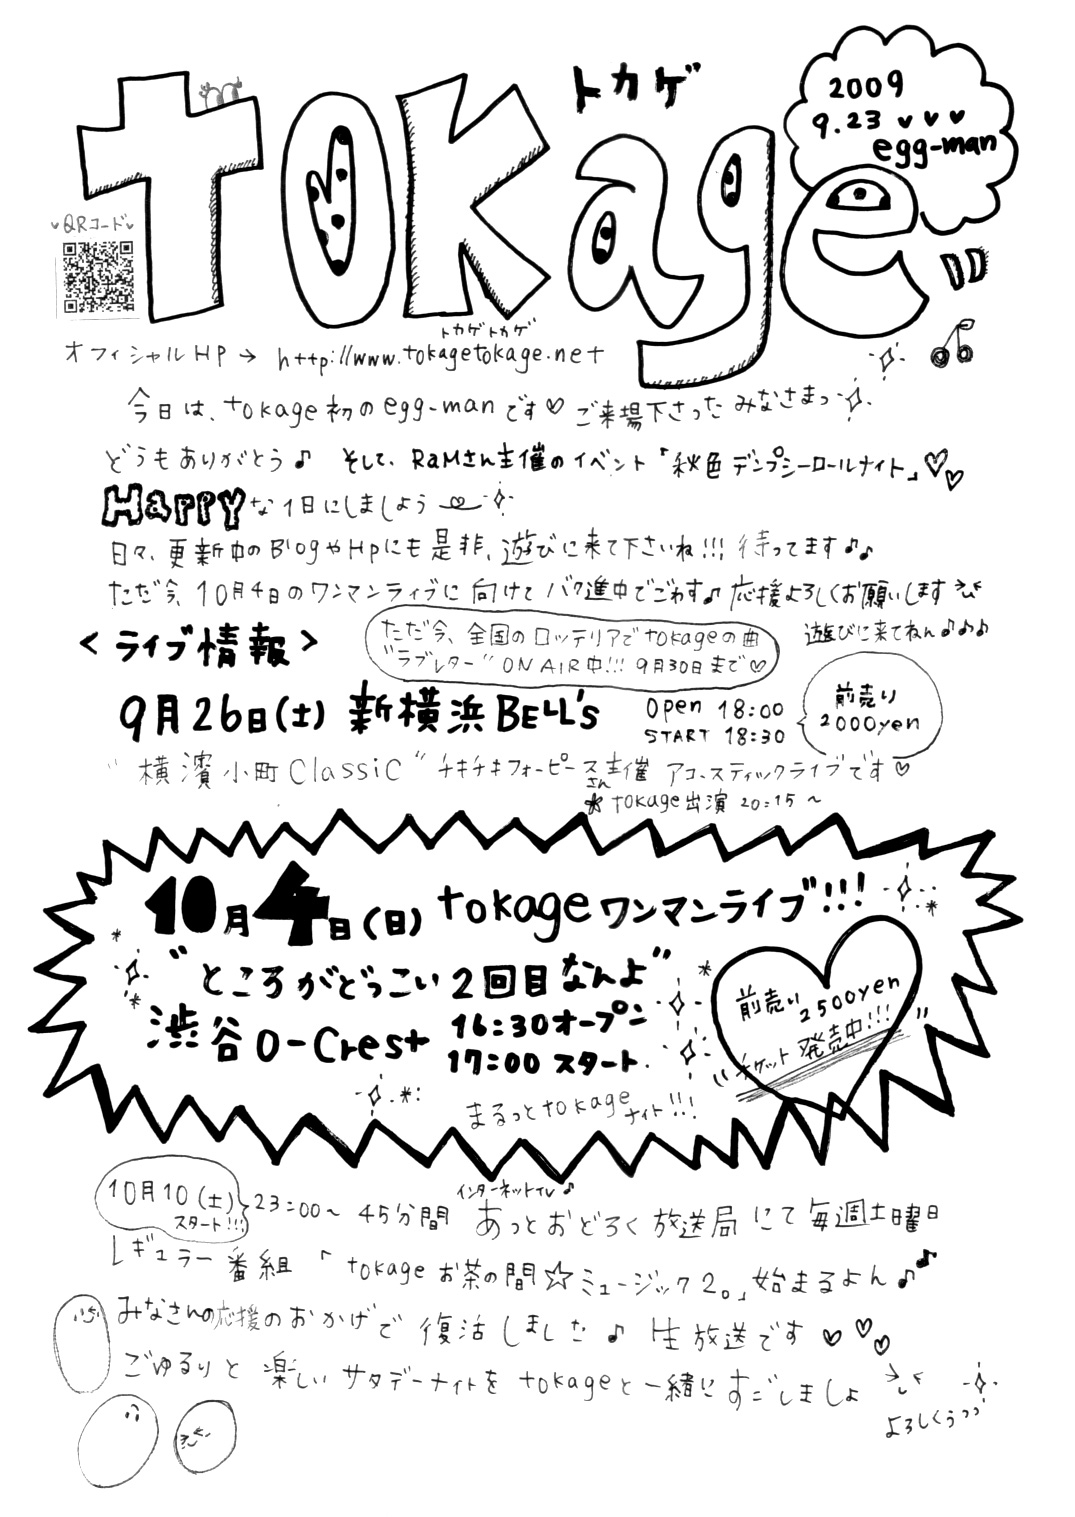 トカゲ
tokage
2009
9.23 ♥♥♥
egg-man
♥QRコード♥
トカゲトカゲ
オフィシャルHP → http://www.tokagetokage.net
今日は、tokage初のegg-manです♡ ご来場下さったみなさまっ
どうもありがとう♪ そして、RaMさん主催のイベント「秋色デンプシーロールナイト」♡♡
Happyな1日にしましょう
日々、更新中のBlogやHpにも是非、遊びに来て下さいね!!! 待ってます♪♪
ただ今、10月4日のワンマンライブに向けてバク進中でごわす♪ 応援よろしくお願いします
遊びに来てねん♪♪♪
<ライブ情報>
ただ今、全国のロッテリアでtokageの曲
"ラブレター" ON AIR中!!! 9月30日まで♡
9月26日(土) 新横浜BELL's
Open 18:00
START 18:30
前売り
2000yen
"横濱小町Classic" チキチキフォーピースさん主催 アコースティックライブです♡
★tokage出演 20:15〜
10月4日(日) tokageワンマンライブ!!!
"ところがどっこい2回目なんよ"
渋谷O-Crest
16:30オープン
17:00スタート
前売り
2500yen
"チケット発売中!!!"
まるっとtokageナイト!!!
10月10(土)
スタート!!!
インターネットTV♪
23:00〜 45分間 あっとおどろく放送局にて毎週土曜日
レギュラー番組「tokageお茶の間☆ミュージック2。」始まるよん♪♪
みなさんの応援のおかげで復活しました♪ 生放送です♡♡♡
ごゆるりと楽しいサタデーナイトをtokageと一緒にすごしましょ
よろしくぅっっ